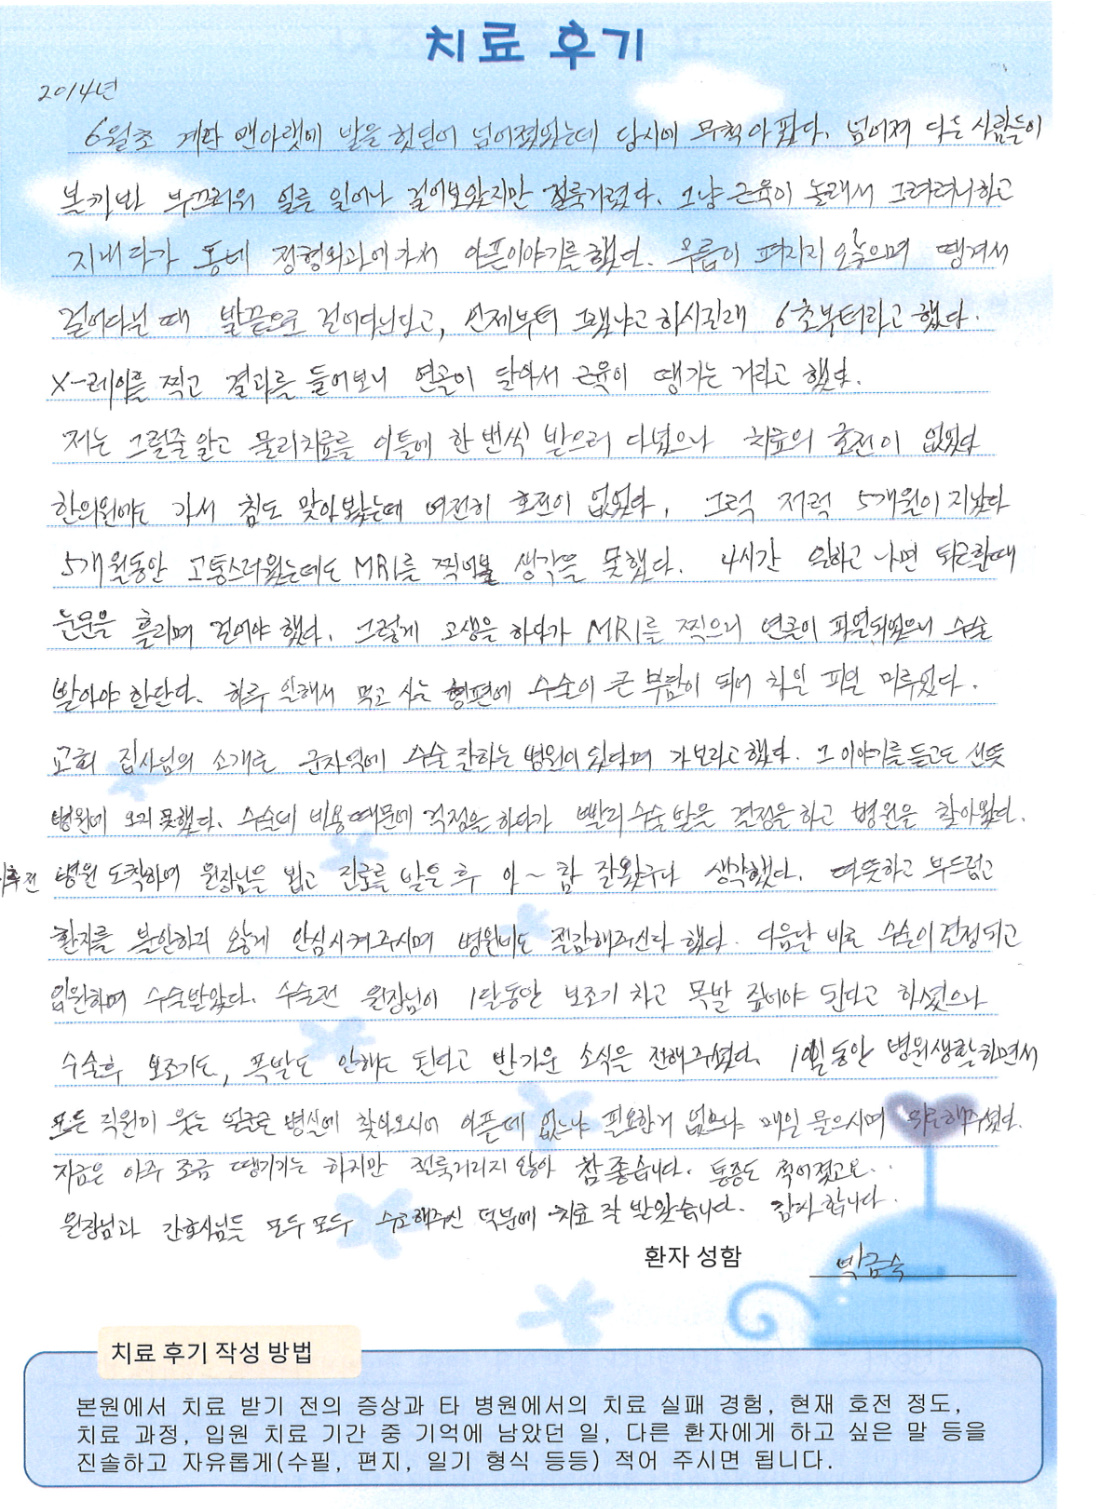 치료 후기
2014년
6월초 계단 맨아랫에 발을 헛딛어 넘어졌었는데 당시에 무척 아팠다. 넘어져 다른 사람들이
볼까봐 부끄러워 얼른 일어나 걸어보았지만 절룩거렸다. 그냥 근육이 놀래서 그려려니하고
지내다가 동네 정형외과에 가서 아픈이야기를 했다. 무릎이 펴지지 않으며 땡겨서
걸어다닐 때 발끝으로 걸어다닌다고, 언제부터 그랬냐고 하시길래 6초부터라고 했다.
X-레이를 찍고 결과를 들어보니 연골이 닳아서 근육이 땡기는 거라고 했다.
저는 그런줄 알고 물리치료를 이틀에 한 번씩 받으러 다녔으나 치료의 호전이 없었다
한의원에도 가서 침도 맞아 봤는데 여전히 호전이 없었다. 그럭 저럭 5개월이 지났다
5개월동안 고통스러웠는데도 MRI를 찍어볼 생각을 못했다. 4시간 일하고 나면 퇴근할때
눈물을 흘리며 걸어야 했다. 그렇게 고생을 하다가 MRI를 찍으니 연골이 파열되었으니 수술
받아야 한단다. 하루 일해서 먹고 사는 형편에 수술이 큰 부담이 되어 차일 피일 미루었다.
교회 집사님의 소개로 군자역에 수술 잘하는 병원이 있다며 가보라고 했다. 그 이야기를 듣고도 선뜻
병원에 오지 못했다. 수술비 비용 때문에 걱정을 하다가 빨리 수술 받을 결정을 하고 병원을 찾아왔다.
병원 도착하여 원장님을 뵙고 진료를 받은 후 아~ 참 잘왔구나 생각했다. 따뜻하고 부드럽고
환자를 불안하지 않게 안심시켜 주시며 병원비도 절감해주신다 했다. 다음날 바로 수술이 결정되고
입원하여 수술받았다. 수술전 원장님이 1달동안 보조기 차고 목발 짚어야 된다고 하셨으나
수술후 보조기도, 목발도 안해도 된다고 반가운 소식을 전해주셨다. 동안 병원생활하면서
모든 직원이 웃는 얼굴로 병실에 찾아오시어 아픈데 없느냐 필요한거 없으냐 매일 물으시며 위로해주셨다.
지금은 아주 조금 땡기기는 하지만 절룩거리지 않아 참 좋습니다. 통증도 적어졌고요..
원장님과 간호사님들 모두 모두 수고해주신 덕분에 치료 잘 받았습니다. 감사합니다.
환자 성함 박금숙
치료 후기 작성 방법
본원에서 치료 받기 전의 증상과 타 병원에서의 치료 실패 경험, 현재 호전 정도,
치료 과정, 입원 치료 기간 중 기억에 남았던 일, 다른 환자에게 하고 싶은 말 등을
진솔하고 자유롭게(수필, 편지, 일기 형식 등등) 적어 주시면 됩니다.